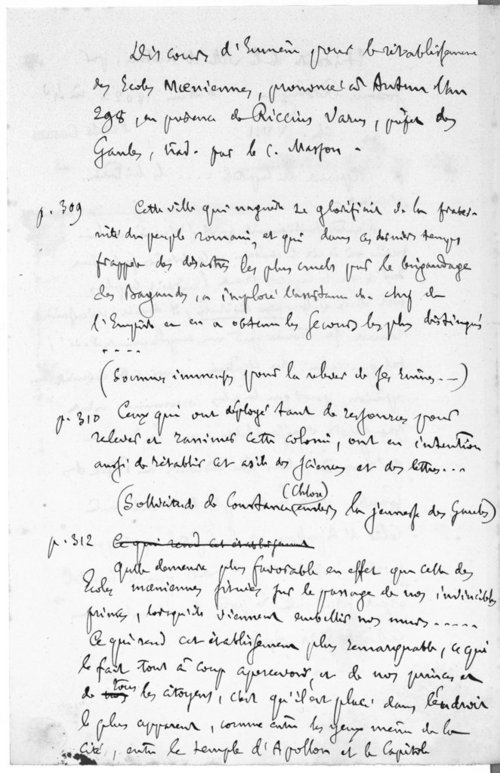 Discours d'Eumène pour le rétablissement
des Ecoles Mœniennes, prononcé à Autun l'an
298, en présence de Riccius Varus, préfet des
Gaules, trad. par le C. Masson.
p. 309 Cette ville qui naguère se glorifiait de la frater-
nité du peuple romain, et qui dans ces derniers temps
frappée des désastres les plus cruels par le brigandage
des Bagaudes, a imploré l'assistance du chef de
l'Empire et en a obtenu les secours les plus distingués
....
(Sommes immenses pour la relever de ses ruines...)
p. 310 Ceux qui ont déployé tant de ressources pour
relever et ranimer cette colonie, ont eu intention
aussi de rétablir cet asile des sciences et des lettres...
(Sollicitude de Constance (Chlore) envers la jeunesse des Gaules)
p. 312 Ce qui rend cet établissement
Quelle demeure plus favorable en effet que celle des
Ecoles mœniennes situées sur le passage de nos invincibles
princes, lorsqu'ils viennent embellir nos murs.....
Ce qui rend cet établissement plus remarquable, ce qui
le fait tout à coup apercevoir, et de nos princes et
de tous les citoyens, c'est qu'il est placé dans l'endroit
le plus apparent, comme entre les yeux même de la
cité, entre le temple d'Apollon et le Capitole